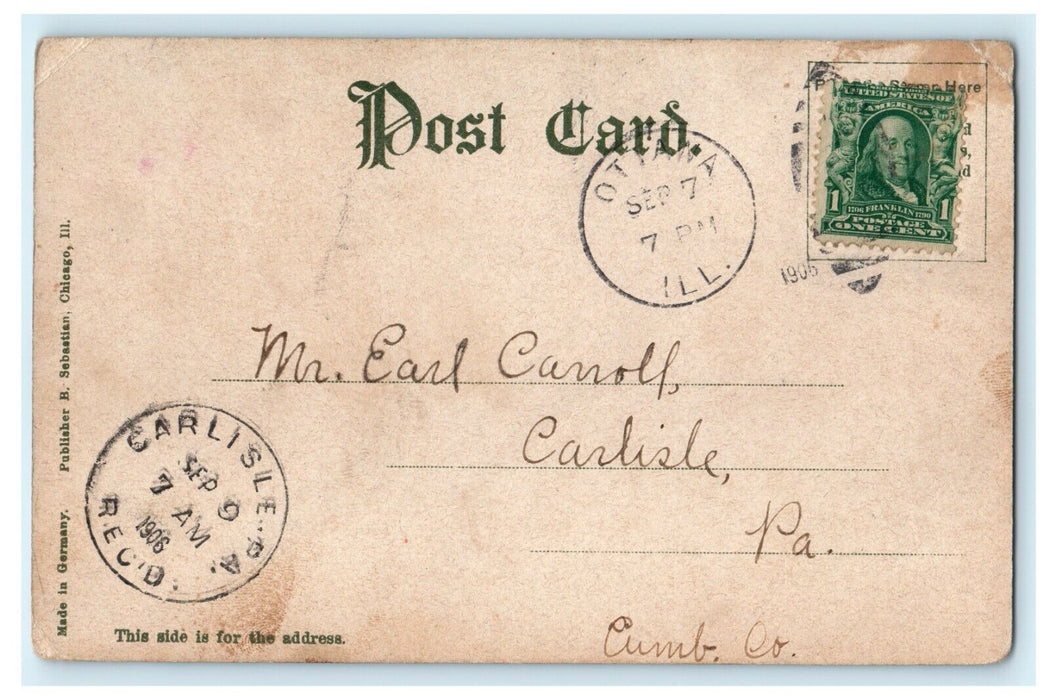 Post Card.
Stamp Here
UNITED STATES OF
AMERICA
1 1
1706 FRANKLIN 1790
POSTAGE
ONE CENT
OTTAWA
SEP 7
7 PM
ILL.
1906
Mr. Earl Carroll,
Carlisle,
Pa.
Cumb. Co.
CARLISLE. PA.
SEP 9
7 AM
1906
REC'D.
Made in Germany. Publisher B. Sebastian, Chicago, Ill.
This side is for the address.